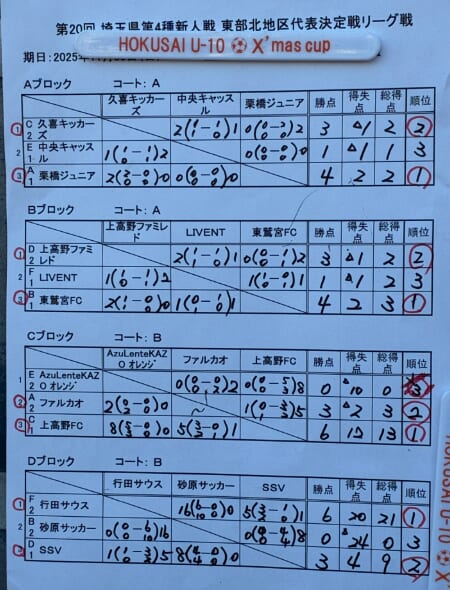 第20回 埼玉県第4種新人戦 東部北地区代表決定戦リーグ戦
HOKUSAI U-10 X'mas cup
期日：2025年
Aブロック コート：A
久喜キッカーズ 中央キャッスル 栗橋ジュニア 勝点 得失点 総得点 順位
① C2 久喜キッカーズ 2(1-1 1-0)1 0(0-2)2 3 △1 2 ②
2 E1 中央キャッスル 1(1-1 0-1)2 0(0-0)0 1 △1 1 3
③ A1 栗橋ジュニア 0(0-0 0-0)0 4 2 2 ①
Bブロック コート：A
上高野ファミレド LIVENT 東鷲宮FC 勝点 得失点 総得点 順位
① D2 上高野ファミレド 3 △1 2 ②
2 F1 LIVENT 1 △1 2 3
③ B1 東鷲宮FC 4 2 3 ①
Cブロック コート：B
AzuLenteKAZO オレンジ ファルカオ 上高野FC 勝点 得失点 総得点 順位
1 E2 AzuLenteKAZO オレンジ 0(0-0 0-2)2 0(0-5 0-3)8 0 △10 0 3
② A2 ファルカオ 3 △2 3 2
③ C1 上高野FC 6 12 13 ①
Dブロック コート：B
行田サウス 砂原サッカー SSV 勝点 得失点 総得点 順位
① F2 行田サウス 16(6-0 10-0)0 6 20 21 ①
2 B2 砂原サッカー 0(0-6 0-10)16 0 △24 0 3
③ D1 SSV 3 4 9 ②
HOKUSAI U-10 X